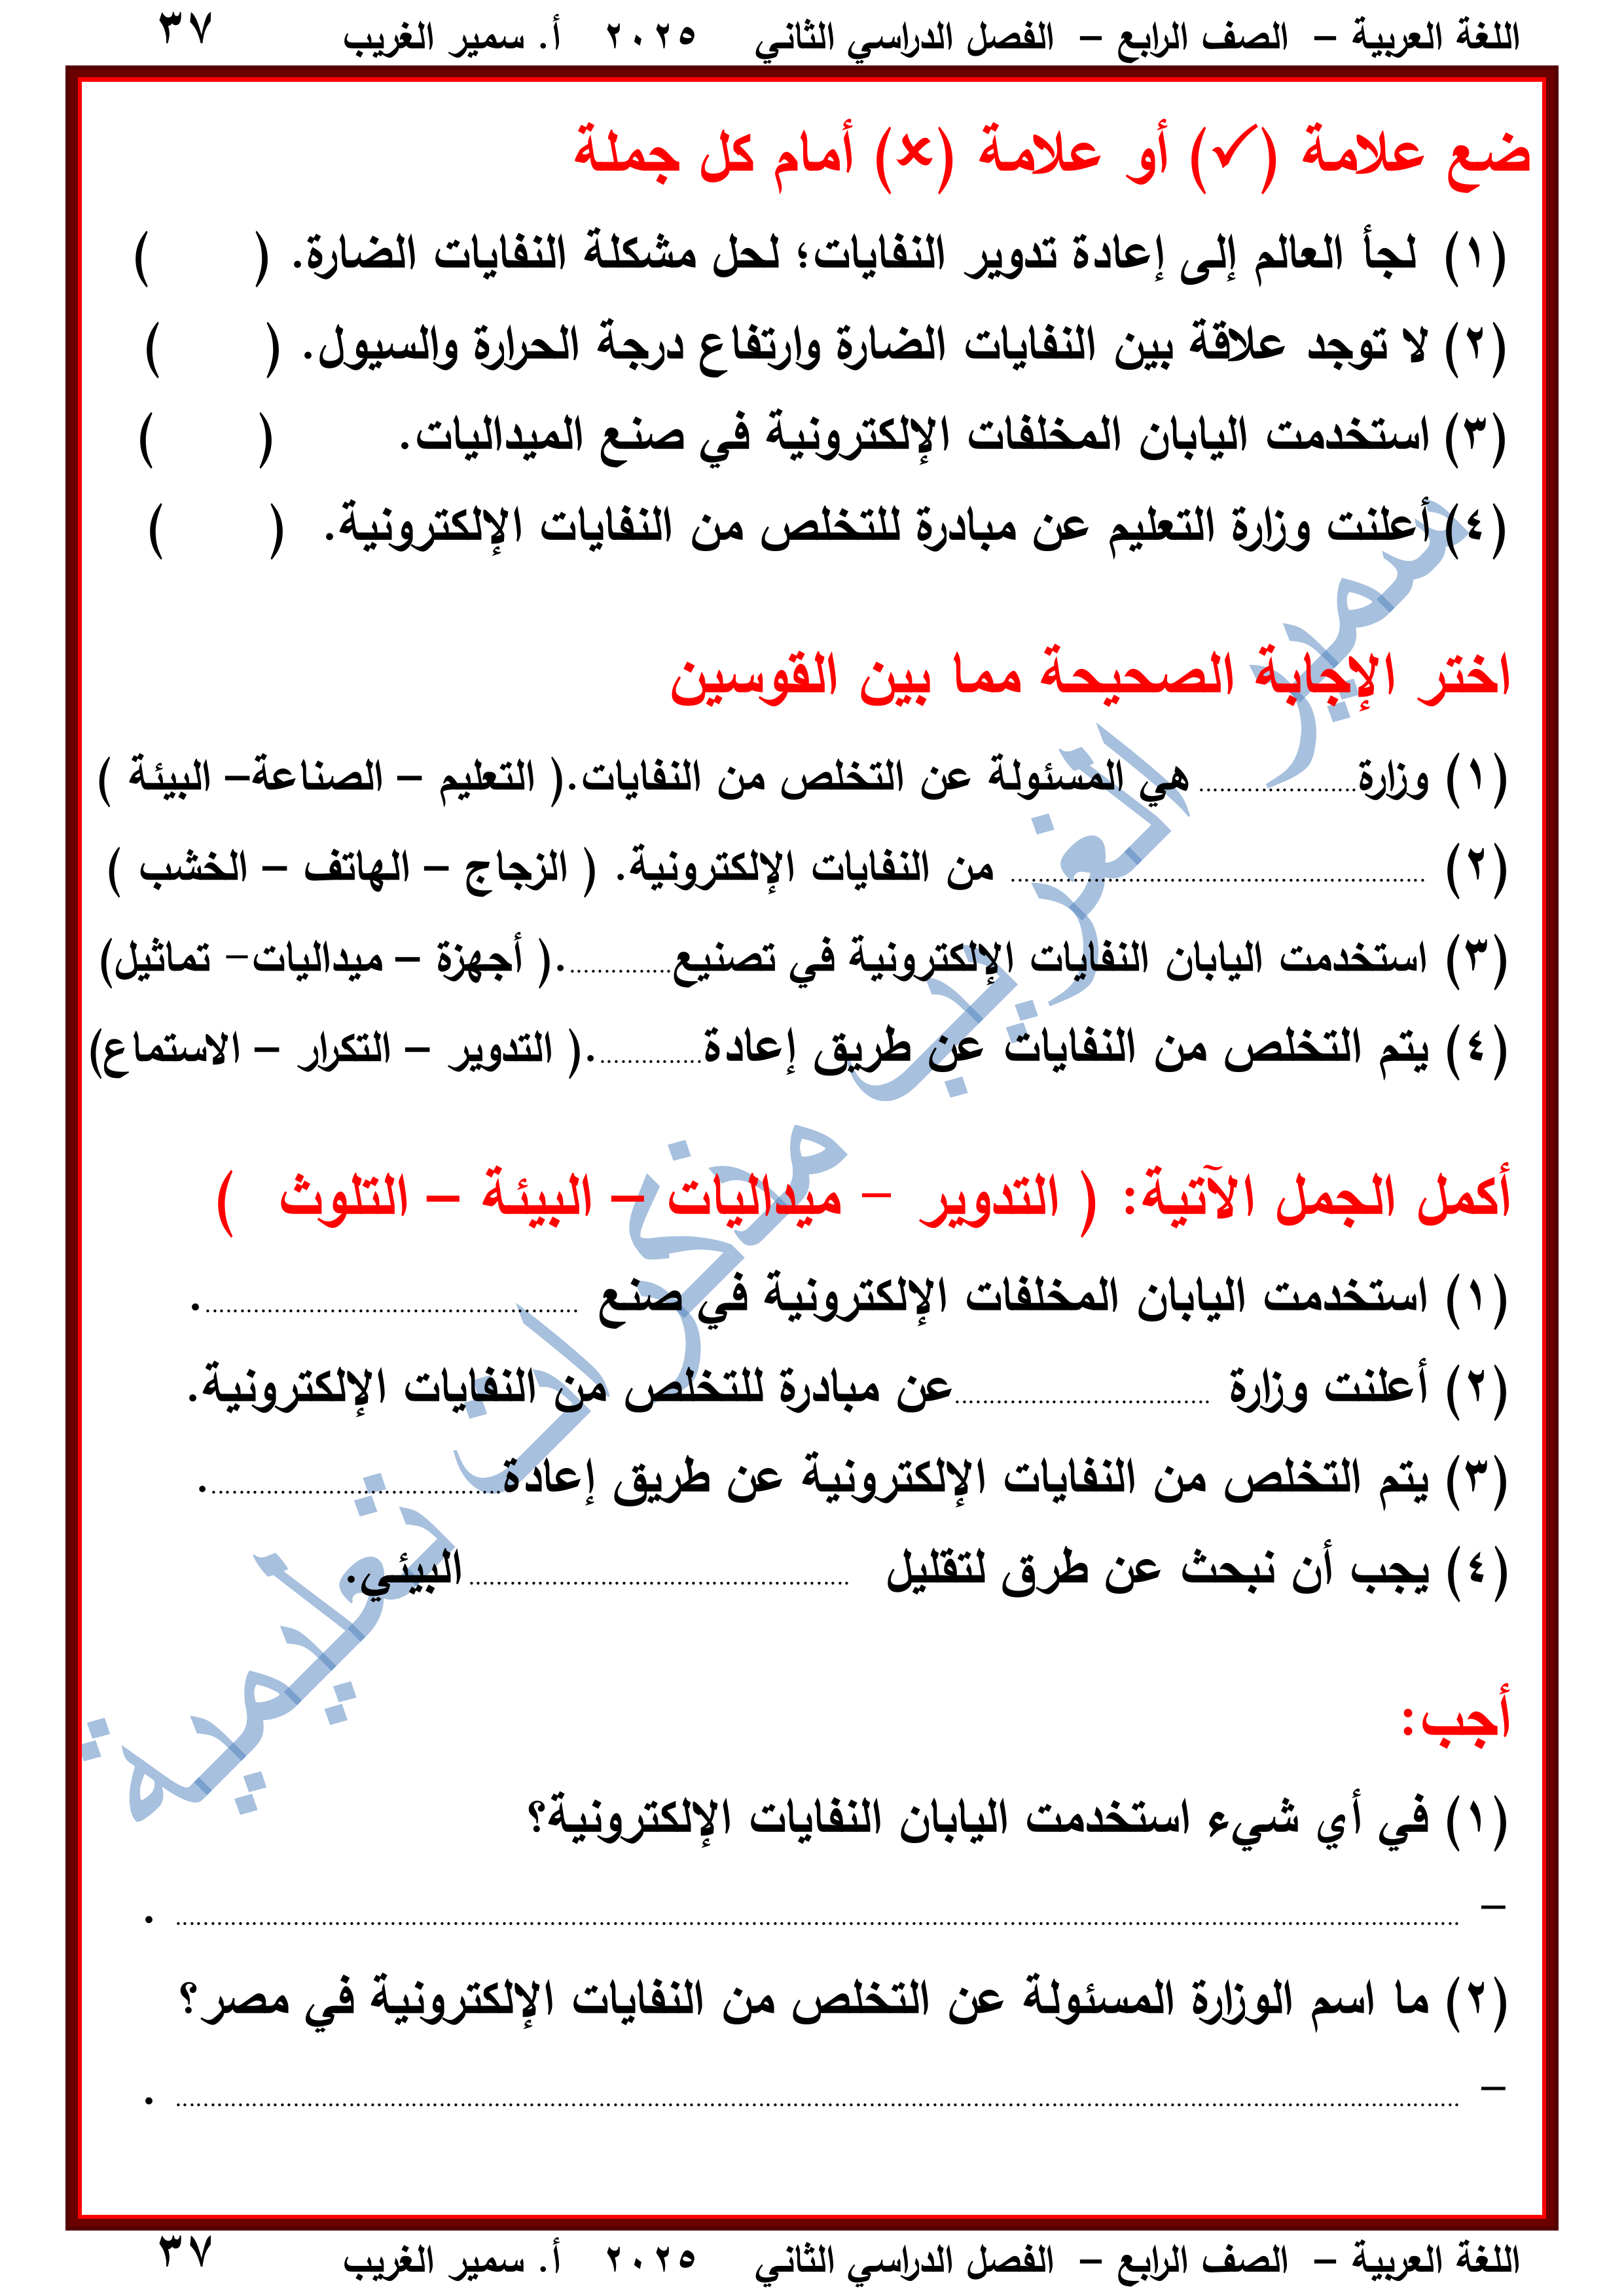 اللغة العربية – الصف الرابع – الفصل الدراسي الثاني ٢٠٢٥ أ. سمير الغريب ٣٧
ضع علامة (✓) أو علامة (×) أمام كل جملة
(١) لجأ العالم إلى إعادة تدوير النفايات؛ لحل مشكلة النفايات الضارة. ( )
(٢) لا توجد علاقة بين النفايات الضارة وارتفاع درجة الحرارة والسيول. ( )
(٣) استخدمت اليابان المخلفات الإلكترونية في صنع الميداليات. ( )
(٤) أعلنت وزارة التعليم عن مبادرة للتخلص من النفايات الإلكترونية. ( )
اختر الإجابة الصحيحة مما بين القوسين
(١) وزارة........................ هي المسئولة عن التخلص من النفايات.( التعليم – الصناعة– البيئة )
(٢) ................................................ من النفايات الإلكترونية. ( الزجاج – الهاتف – الخشب )
(٣) استخدمت اليابان النفايات الإلكترونية في تصنيع................( أجهزة – ميداليات– تماثيل)
(٤) يتم التخلص من النفايات عن طريق إعادة................( التدوير – التكرار – الاستماع)
أكمل الجمل الآتية: ( التدوير – ميداليات – البيئة – التلوث )
(١) استخدمت اليابان المخلفات الإلكترونية في صنع ................................................ .
(٢) أعلنت وزارة ................................عن مبادرة للتخلص من النفايات الإلكترونية.
(٣) يتم التخلص من النفايات الإلكترونية عن طريق إعادة........................................ .
(٤) يجب أن نبحث عن طرق لتقليل ................................................البيئي.
أجب:
(١) في أي شيء استخدمت اليابان النفايات الإلكترونية؟
– ................................................................................................ .
(٢) ما اسم الوزارة المسئولة عن التخلص من النفايات الإلكترونية في مصر؟
– ................................................................................................ .
سمير الغريب مذكرات تعليمية
اللغة العربية – الصف الرابع – الفصل الدراسي الثاني ٢٠٢٥ أ. سمير الغريب ٣٧